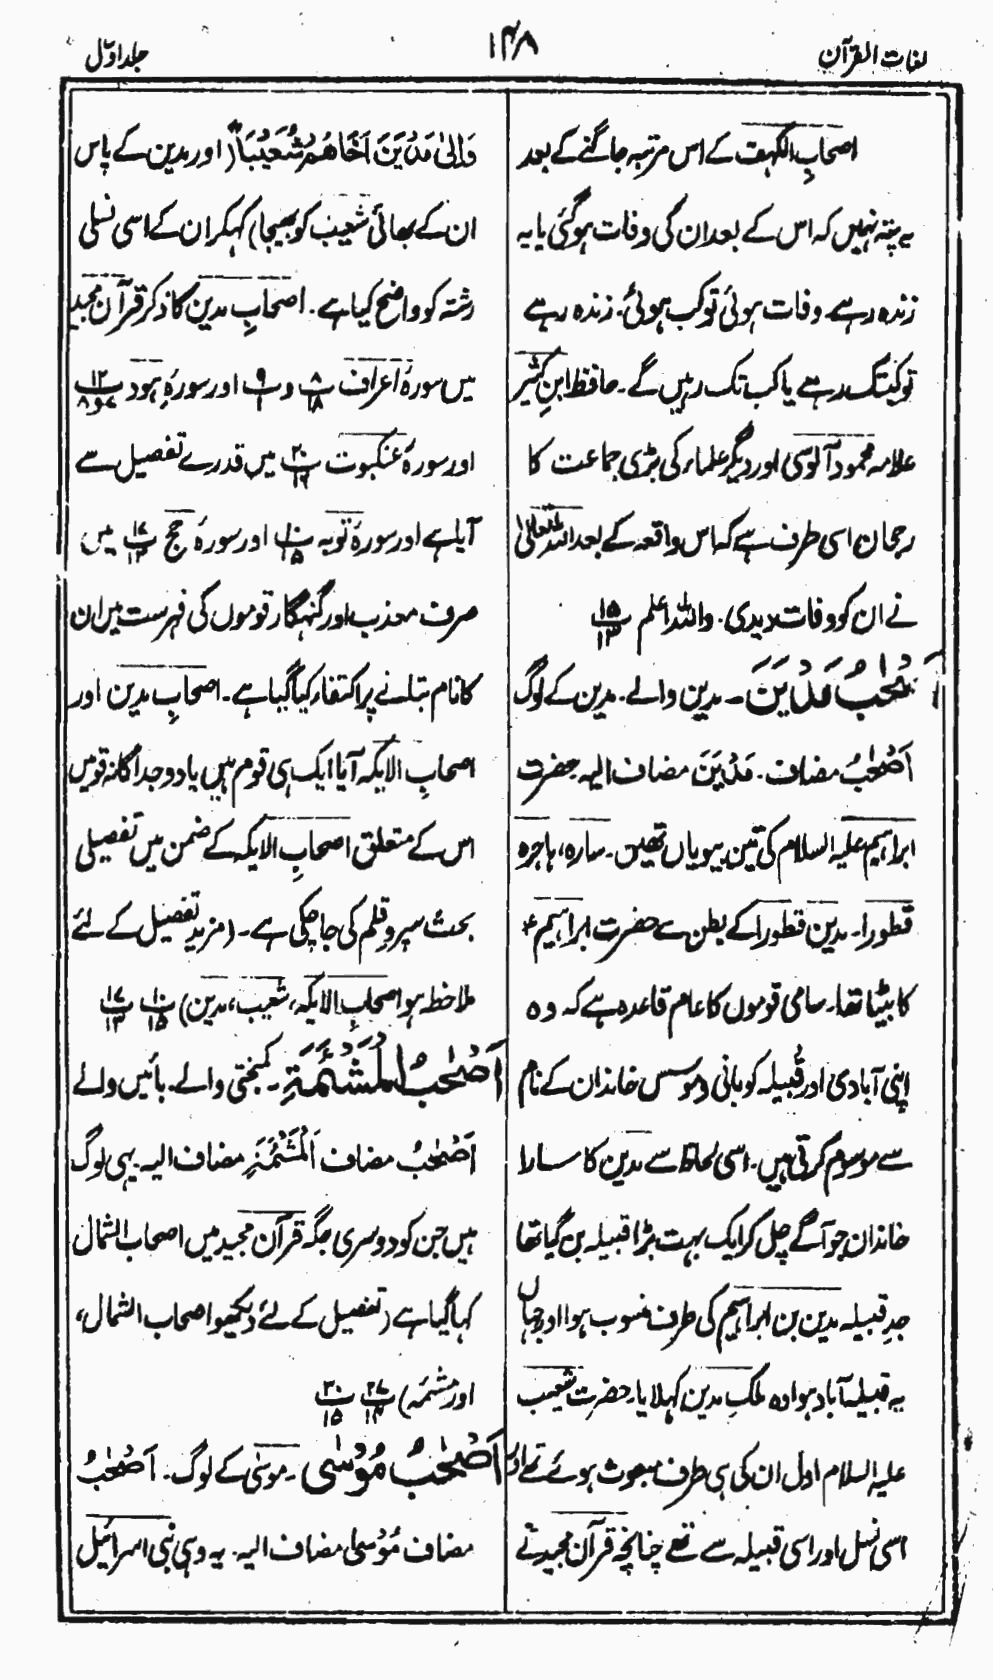 لغات القرآن
۱۴۸
جلد اوّل
اصحاب الکہف کے اس مرتبہ جاگنے کے بعد
یہ پتہ نہیں کہ اس کے بعد ان کی وفات ہوگئی یا یہ
زندہ رہے۔ وفات ہوئی تو کب ہوئی۔ زندہ رہے
تو کبتک رہے یا کب تک رہیں گے۔ حافظ ابن کثیر
علامہ محمود آلوسی اور دیگر علماء کی بڑی جماعت کا
رجحان اسی طرف ہے کہ اس واقعہ کے بعد اللہ تعالیٰ
نے ان کو وفات دیدی۔ واللہ اعلم پ۱۵ ۱۳
اَصْحٰبُ مَدْیَنَ۔ مدین والے۔ مدین کے لوگ
اَصْحٰبُ مضاف۔ مَدْیَنَ مضاف الیہ حضرت
ابراہیم علیہ السلام کی تین بیویاں تھیں۔ سارہ، ہاجرہ
قطورا۔ مدین قطورا کے بطن سے حضرت ابراہیمؑ
کا بیٹا تھا۔ سامی قوموں کا عام قاعدہ ہے کہ وہ
اپنی آبادی اور قبیلہ کو بانی و موسس خاندان کے نام
سے موسوم کرتی ہیں۔ اسی لحاظ سے مدین کا سارا
خاندان جو آگے چل کر ایک بہت بڑا قبیلہ بن گیا تھا
جدِ قبیلہ مدین بن ابراہیم کی طرف منسوب ہوا اور جہاں
یہ قبیلہ آباد ہوا وہ ملکِ مدین کہلایا۔ حضرت شعیب
علیہ السلام اول ان کی ہی طرف مبعوث ہوئے تھے اور
اسی نسل اور اسی قبیلہ سے تھے چنانچہ قرآن مجید نے
وَاِلیٰ مَدْیَنَ اَخَاهُمْ شُعَیْبًا (اور مدین کے پاس
ان کے بھائی شعیب کو بھیجا) کہکر ان کے اسی نسلی
رشتہ کو واضح کیا ہے۔ اصحابِ مدین کا ذکر قرآن مجید
میں سورۂ اعراف پ۸ ۱۸ و پ۹ ۱ اور سورۂ ہود پ۱۲ ۸و۷
اور سورۂ عنکبوت پ۲۰ ۱۶ میں قدرے تفصیل سے
آیا ہے اور سورۂ توبہ پ۱۰ ۱۵ اور سورۂ حج پ۱۷ ۱۳ میں
صرف معذب اور گنہگار قوموں کی فہرست میں ان
کا نام بتلانے پر اکتفاء کیا گیا ہے۔ اصحابِ مدین اور
اصحابِ الایکہ آیا ایک ہی قوم ہیں یا دو جداگانہ قومیں
اس کے متعلق اصحابِ الایکہ کے ضمن میں تفصیلی
بحث سپرو قلم کی جاچکی ہے۔ (مزید تفصیل کے لئے
ملاحظہ ہو اصحابِ الایکہ، شعیب، مدین) پ۱۰ ۱۵ پ۱۷ ۱۳
اَصْحٰبُ الْمَشْئَمَةِ۔ کمبختی والے۔ بائیں والے
اَصْحٰبُ مضاف اَلْمَشْئَمَةِ مضاف الیہ۔ یہی لوگ
ہیں جن کو دوسری جگہ قرآن مجید میں اصحاب الشمال
کہا گیا ہے (تفصیل کے لئے دیکھو اصحاب الشمال،
اور مشئمہ) پ۲۷ ۱۴ پ۳۰ ۱۵
اَصْحٰبُ مُوْسٰی۔ موسیٰ کے لوگ۔ اَصْحٰبُ
مضاف مُوْسٰی مضاف الیہ۔ یہ وہی بنی اسرائیل